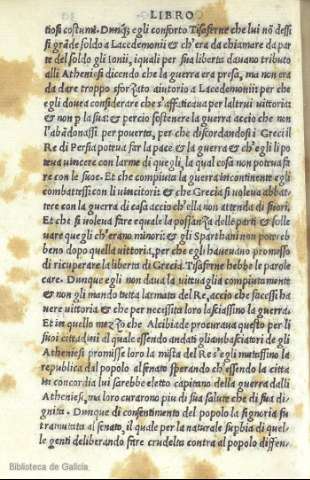 LIBRO
tiosi costumi. Dunque egli conforto Tisaferne che lui nō dessi
si grāde soldo a Lacedemonii & ch'era da chiamare da par
te del soldo gli Ionii, i quali per sua liberta davano tributo
alli Atheniesi dicendo che la guerra era presa, ma non era
da dare troppo sforzato aiutorio a Lacedemonii per che
egli doueua considerare che s'affaticaua per laltrui vittoria
& non p la sua: & percio sostenere la guerra accio che non
l'abādonassi per pouerta, per che discordandosi i Greci il
Re di Persia potrua far la pace & la guerra & ch'egli po
teua vincere con larme di quegli, la qual cosa non potrua fa
re con le sue. Et che compiuta la guerra incontinente egli
combattessi con li vincitori: & che Grecia si voleua abbat
tere con la guerra di casa accio ch'ella non attenda di fuori.
Et che si voleua fare equale la possanza delle parti & solle
uare que gli ch'erano minori: & gli Sparthani non potreb
beno dopo quella vittoria, per che egli haueuano promisso
di ricuperare la liberta di Grecia Tisaferne hebbe le parole
care. Dunque egli non daua la vittuaglia compiutamente
& non gli mando tutta larmata del Re, accio che facessi ha
uere vittoria & che per necessita loro lasciassino la guerra.
Et in quello mezzo che Alcibiade procuraua questo per li
suoi cittadini al quale essendo andati gli ambasciatori de gli
Atheniesi promisse loro la mista del Re s'egli mutassino la
republica dal popolo al senato sperando ch'essendo la citta
in concordia lui sarebbe eletto capitano della guerra dalli
Atheniesi, ma loro curarono piu di sua salute che di sua di
gnita. Dunque di consentimento del popolo la signoria fu
tramutata al senato, il quale per la naturale supbia di quel
le genti deliberando fare crudelta contra al popolo dissen,
Biblioteca de Galicia